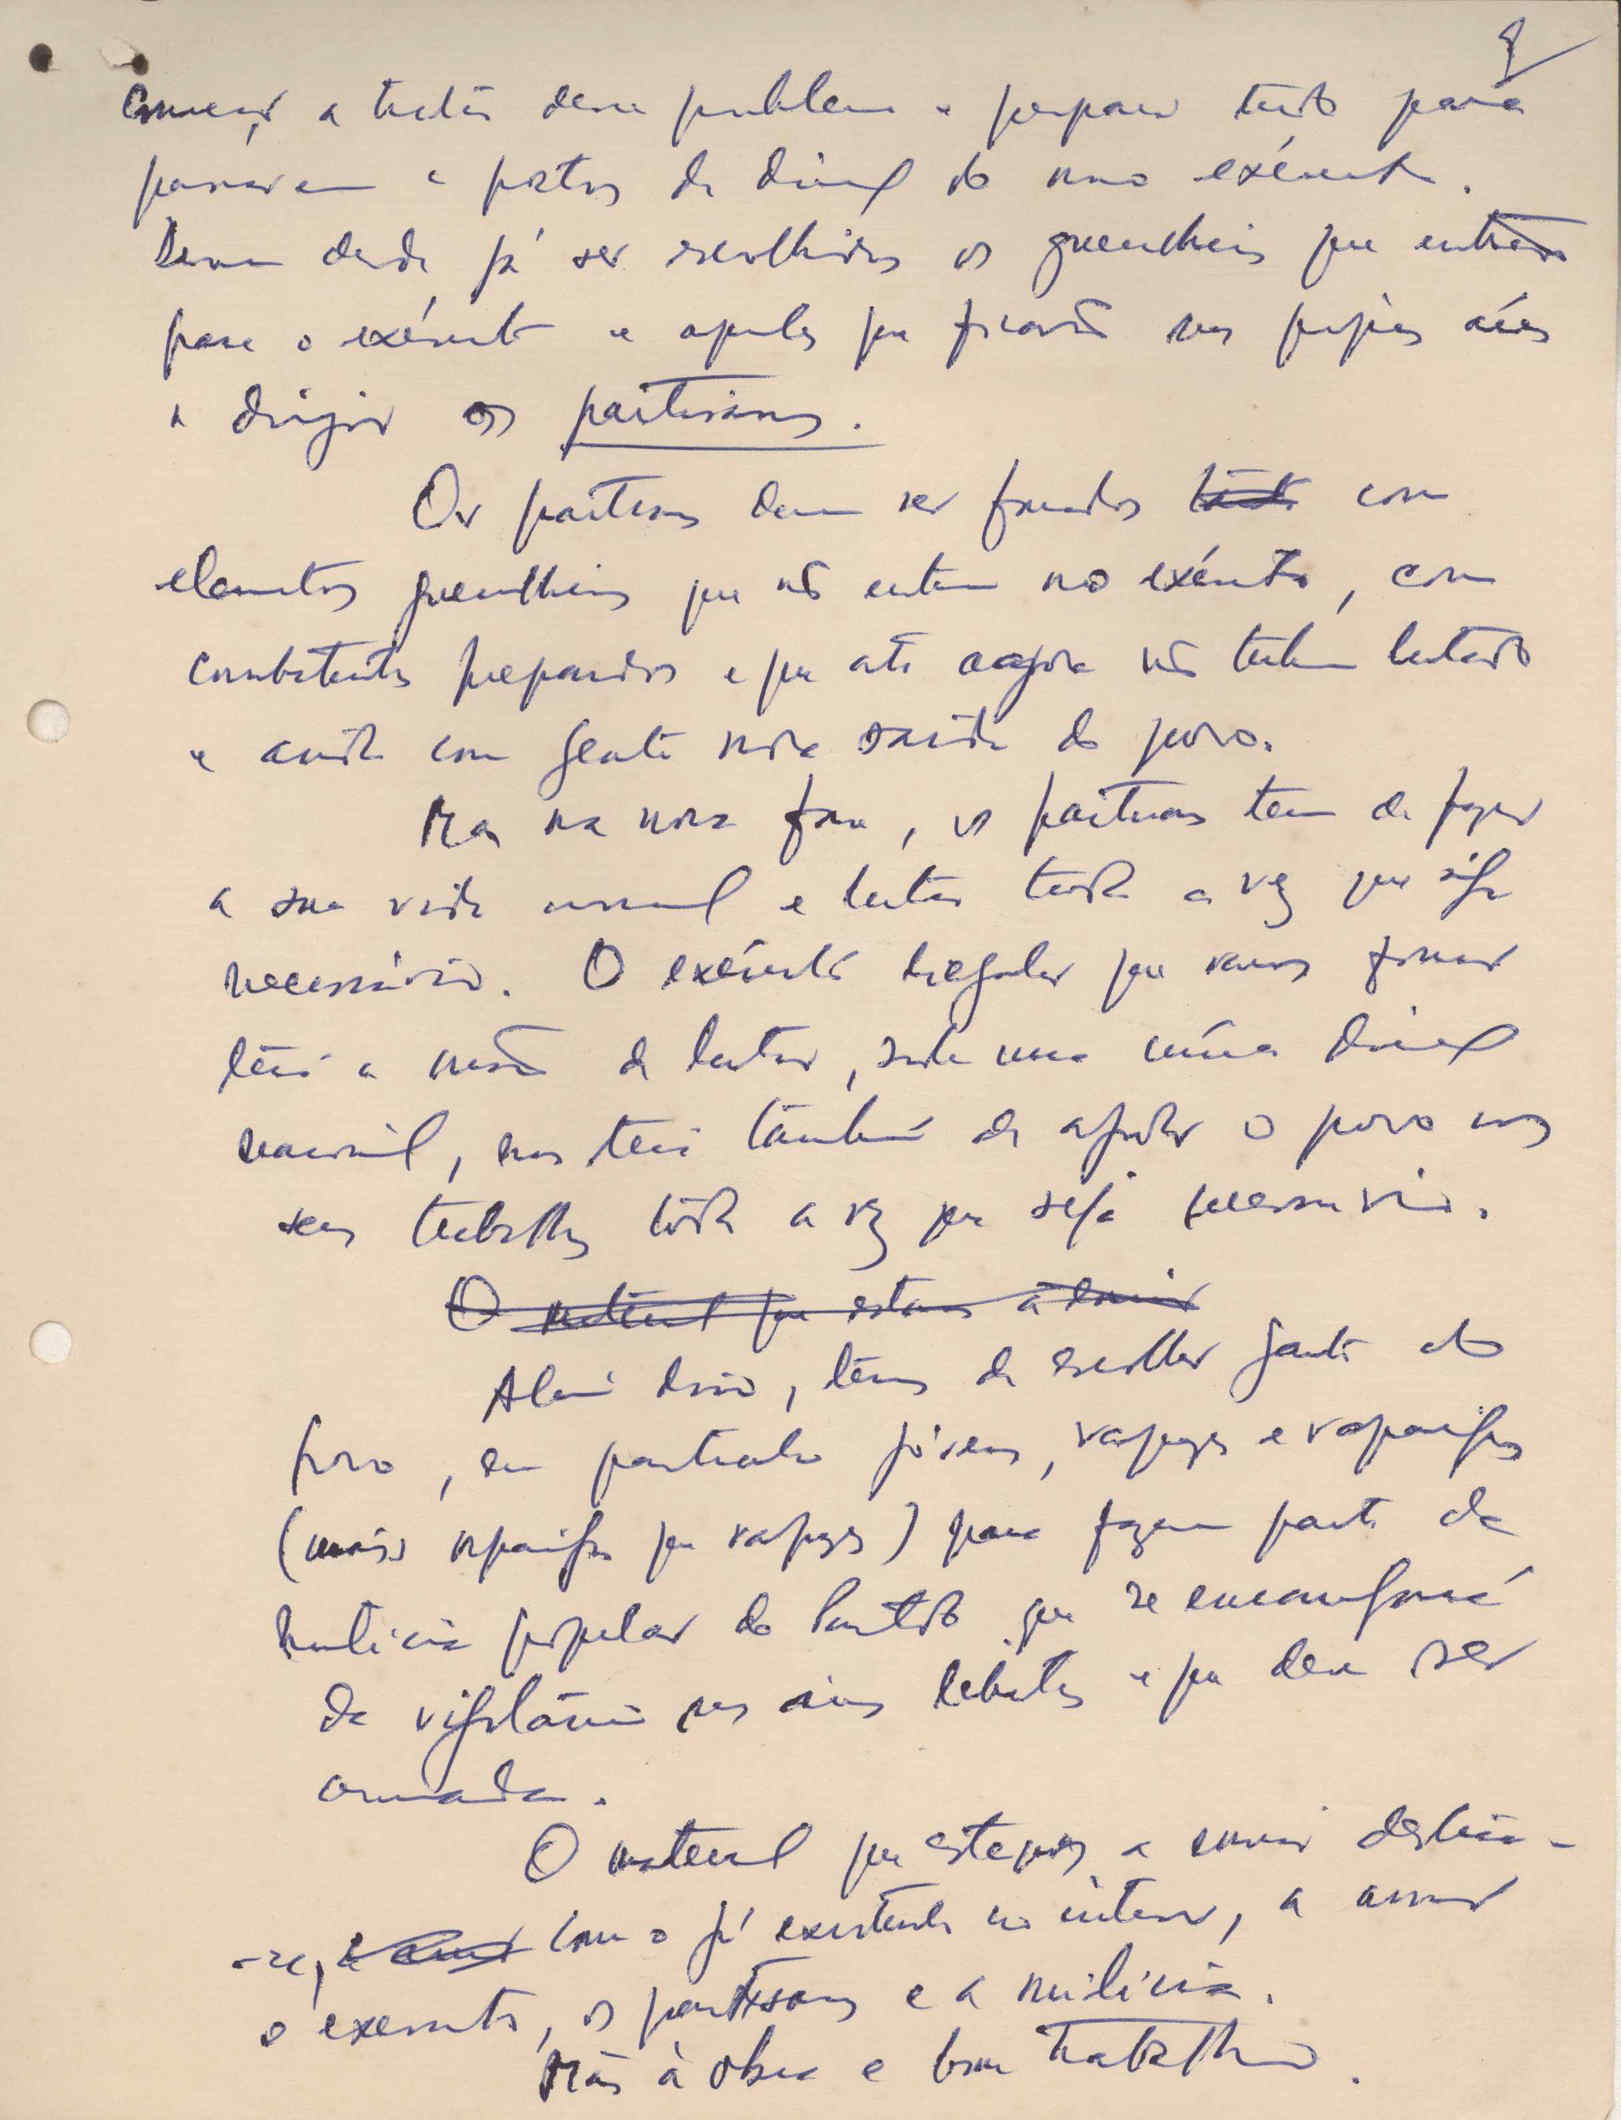 começar a tratar desse problema e preparar tudo para
passarem a postos de direcç do novo exército.
Devem desde já ser escolhidos os guerrilheiros que entrarão
para o exército e aqueles que ficarão nas próprias áreas
a dirigir os partisans.
Os partisans devem ser formados com
elementos guerrilheiros que não entrem no exército, com
combatentes preparados e que até agora não tenham lutado
e ainda com gente nova saída do povo.
Mas na nova fase, os partisans tem de fazer
a sua vida normal e lutar toda a vez que seja
necessário. O exército regular que vamos formar
terá a missão de lutar, sob uma única direcç
nacional, mas terá também de ajudar o povo nos
seus trabalhos toda a vez que seja necessário.
O material que estamos a enviar
Além disso, temos de escolher gente do
povo, em particular jóvens, rapazes e raparigas
(mais raparigas que rapazes) para fazerem parte da
milicia popular do Partido que se encarregará
da vigilância nas áreas libertadas e que deve ser
armada.
O material que estamos a enviar destina-
-se, com o já existente no interior, a armar
o exercito, os partisans e a milicia.
Mãos à obra e bom trabalho.